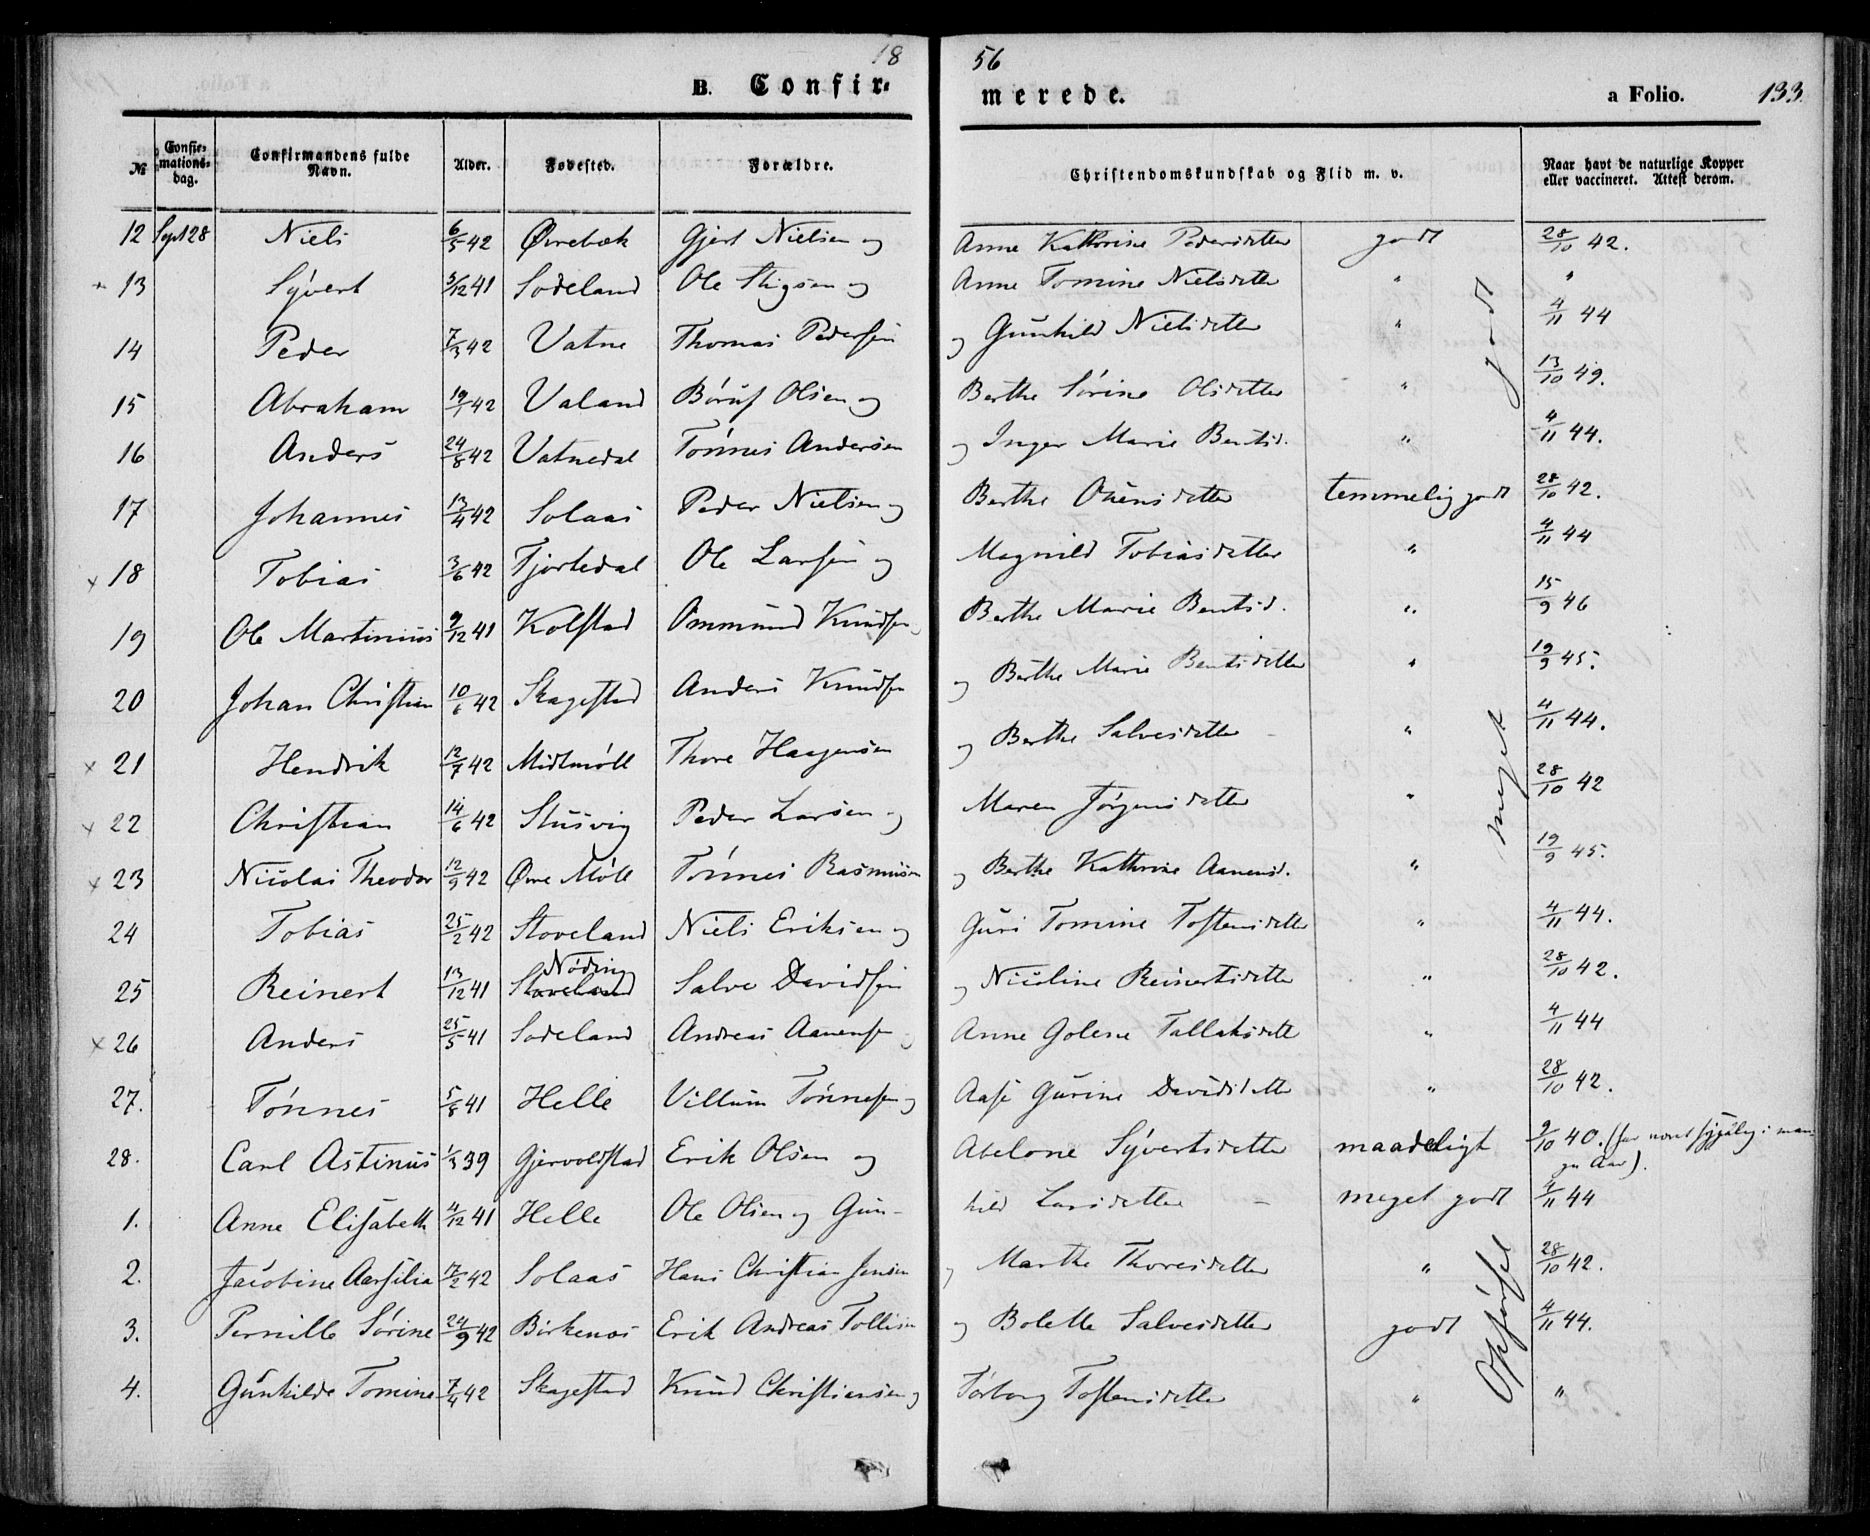 18 56
B. Confir-merede. a Folio. 133
№ Confir-mations-dag. Confirmandens fulde Navn. Alder. Fødested. Forældre. Christendomskundskab og Flid m. v. Naar havt de naturlige Kopper eller vaccineret. Attest derom.
12 Sept 28 Niels 6/5 42 Øvrebøk Gjert Nielsen og Anne Kathrine Pedersdatter godt 28/10 42.
× 13 Syvert 3/12 41 Sodeland Ole Stigsen og Anne Tomine Nielsdatter " "
14 Peder 7/3 42 Vatne Thomas Pedersen og Gunhild Nielsdatter " 4/11 44
15 Abraham 19/1 42 Valand Børuf Olsen og Berthe Sørine Olsdatter " 13/10 49.
16 Anders 24/8 42 Vatnedal Tønnes Andersen og Inger Marie Bentsd. " 4/11 44.
17 Johannes 13/4 42 Solaas Peder Nielsen og Berthe Ommsdatter temmelig godt 28/10 42.
× 18 Tobias 3/6 42 Tjortedal Ole Larsen og Magnild Tobiasdatter " 4/11 44
19 Ole Martinius 9/12 41 Kolstad Ommund Knudsen Berthe Marie Bentsd. " 15/9 46
20 Johan Christian 10/6 42 Skagestad Anders Knudsen og Berthe Marie Bentsdatter " 19/9 45.
× 21 Hendrik 12/7 42 Midtmøll Thore Haagensen og Berthe Salvesdatter " 4/11 44.
× 22 Christian 14/6 42 Stusvig Peder Larsen og Maren Jørgensdatter " 28/10 42
× 23 Nicolai Theodor 12/9 42 Øvre Møll Tønnes Rasmussen og Berthe Kathrine Aanensd. " 19/9 45.
24 Tobias 25/2 42 Stoveland Niels Eriksen og Guri Tomine Tostensdatter " 4/11 44.
25 Reinert 13/12 41 Stoveland Nøding Salve Davidsen og Nicoline Reinertsdatter " 28/10 42.
× 26 Anders 25/5 41 Sodeland Andreas Aanensen og Anne Golene Tallaksdatt " 4/11 44
27. Tønnes 5/8 41 Helle Villum Tønnesen og Aase Gurine Davidsdatter " 28/10 42.
28. Carl Astinus 1/3 39 Gjervoldstad Erik Olsen og Abelone Syvertsdatter maadeligt 9/10 40. (har været sygelig i man-
ge Aar).
1. Anne Elisabeth 4/12 41 Helle Ole Olsen og Gun-hild Larsdatter - meget godt 4/11 44
2. Jacobine Aarsilia 17/2 42 Solaas Hans Christian Jensen og Marthe Thoresdatter " 28/10 42.
3. Pernille Sørine 24/9 42 Birkenes Erik Andreas Tollisen og Bolette Salvesdatter godt 4/11 44.
4. Gunhilde Tomine 7/4 42 Skagestad Knud Christiansen og Torborg Tostensdatter " "
Opførsel meget godt